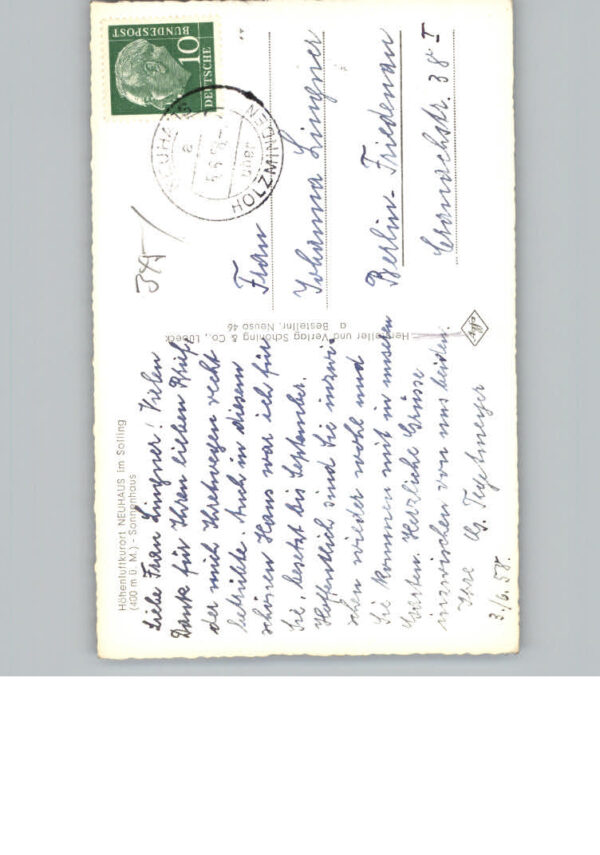 Höhenluftkurort NEUHAUS im Solling
(400 m ü. M.) - Sonnenhaus
Liebe Frau Lingner! Vielen
Dank für Ihren lieben Brief,
der mich Ihretwegen recht
betrübte. Auch in diesem
schönen Haus war ich für
Sie, besetzt bis September.
Hoffentlich sind Sie inzwi-
schen wieder wohl und
Sie kommen mit in unseren
Garten. Herzliche Grüsse
inzwischen von uns beiden.
Ihre G.
3./6. 58.
Hersteller und Verlag Schöning & Co., Lübeck
Bestellnr. Neuso 46
DEUTSCHE
BUNDESPOST
10
NEUHAUS
HOLZMINDEN
a
Frau
Johanna Lingner
Berlin-Friedenau
Cranachstr. 38 I